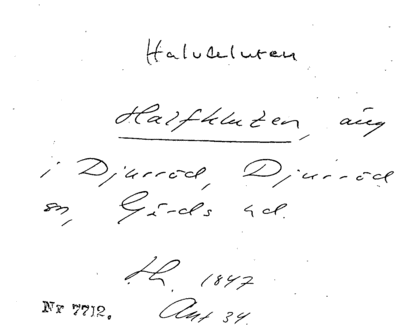 Halvkluten
Halfkluten, äng
i Djurröd, Djurröd
sn, Gärds hd.
Sk. 1847
Nr 7712. Akt 34.